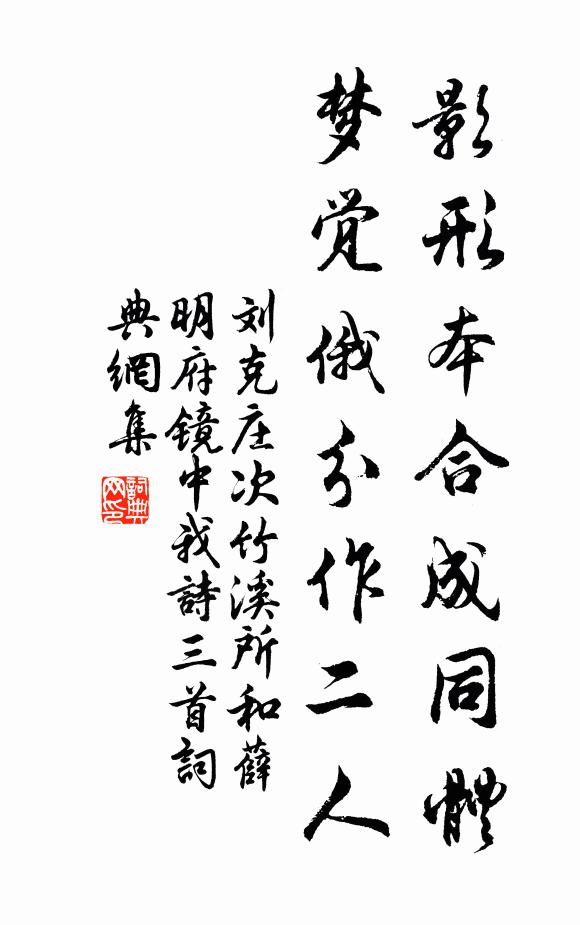 影形本合成同體
梦觉俄分作二人
刘克庄次竹溪所和薛
明府镜中我詩三首詞
典網集
詞典网印